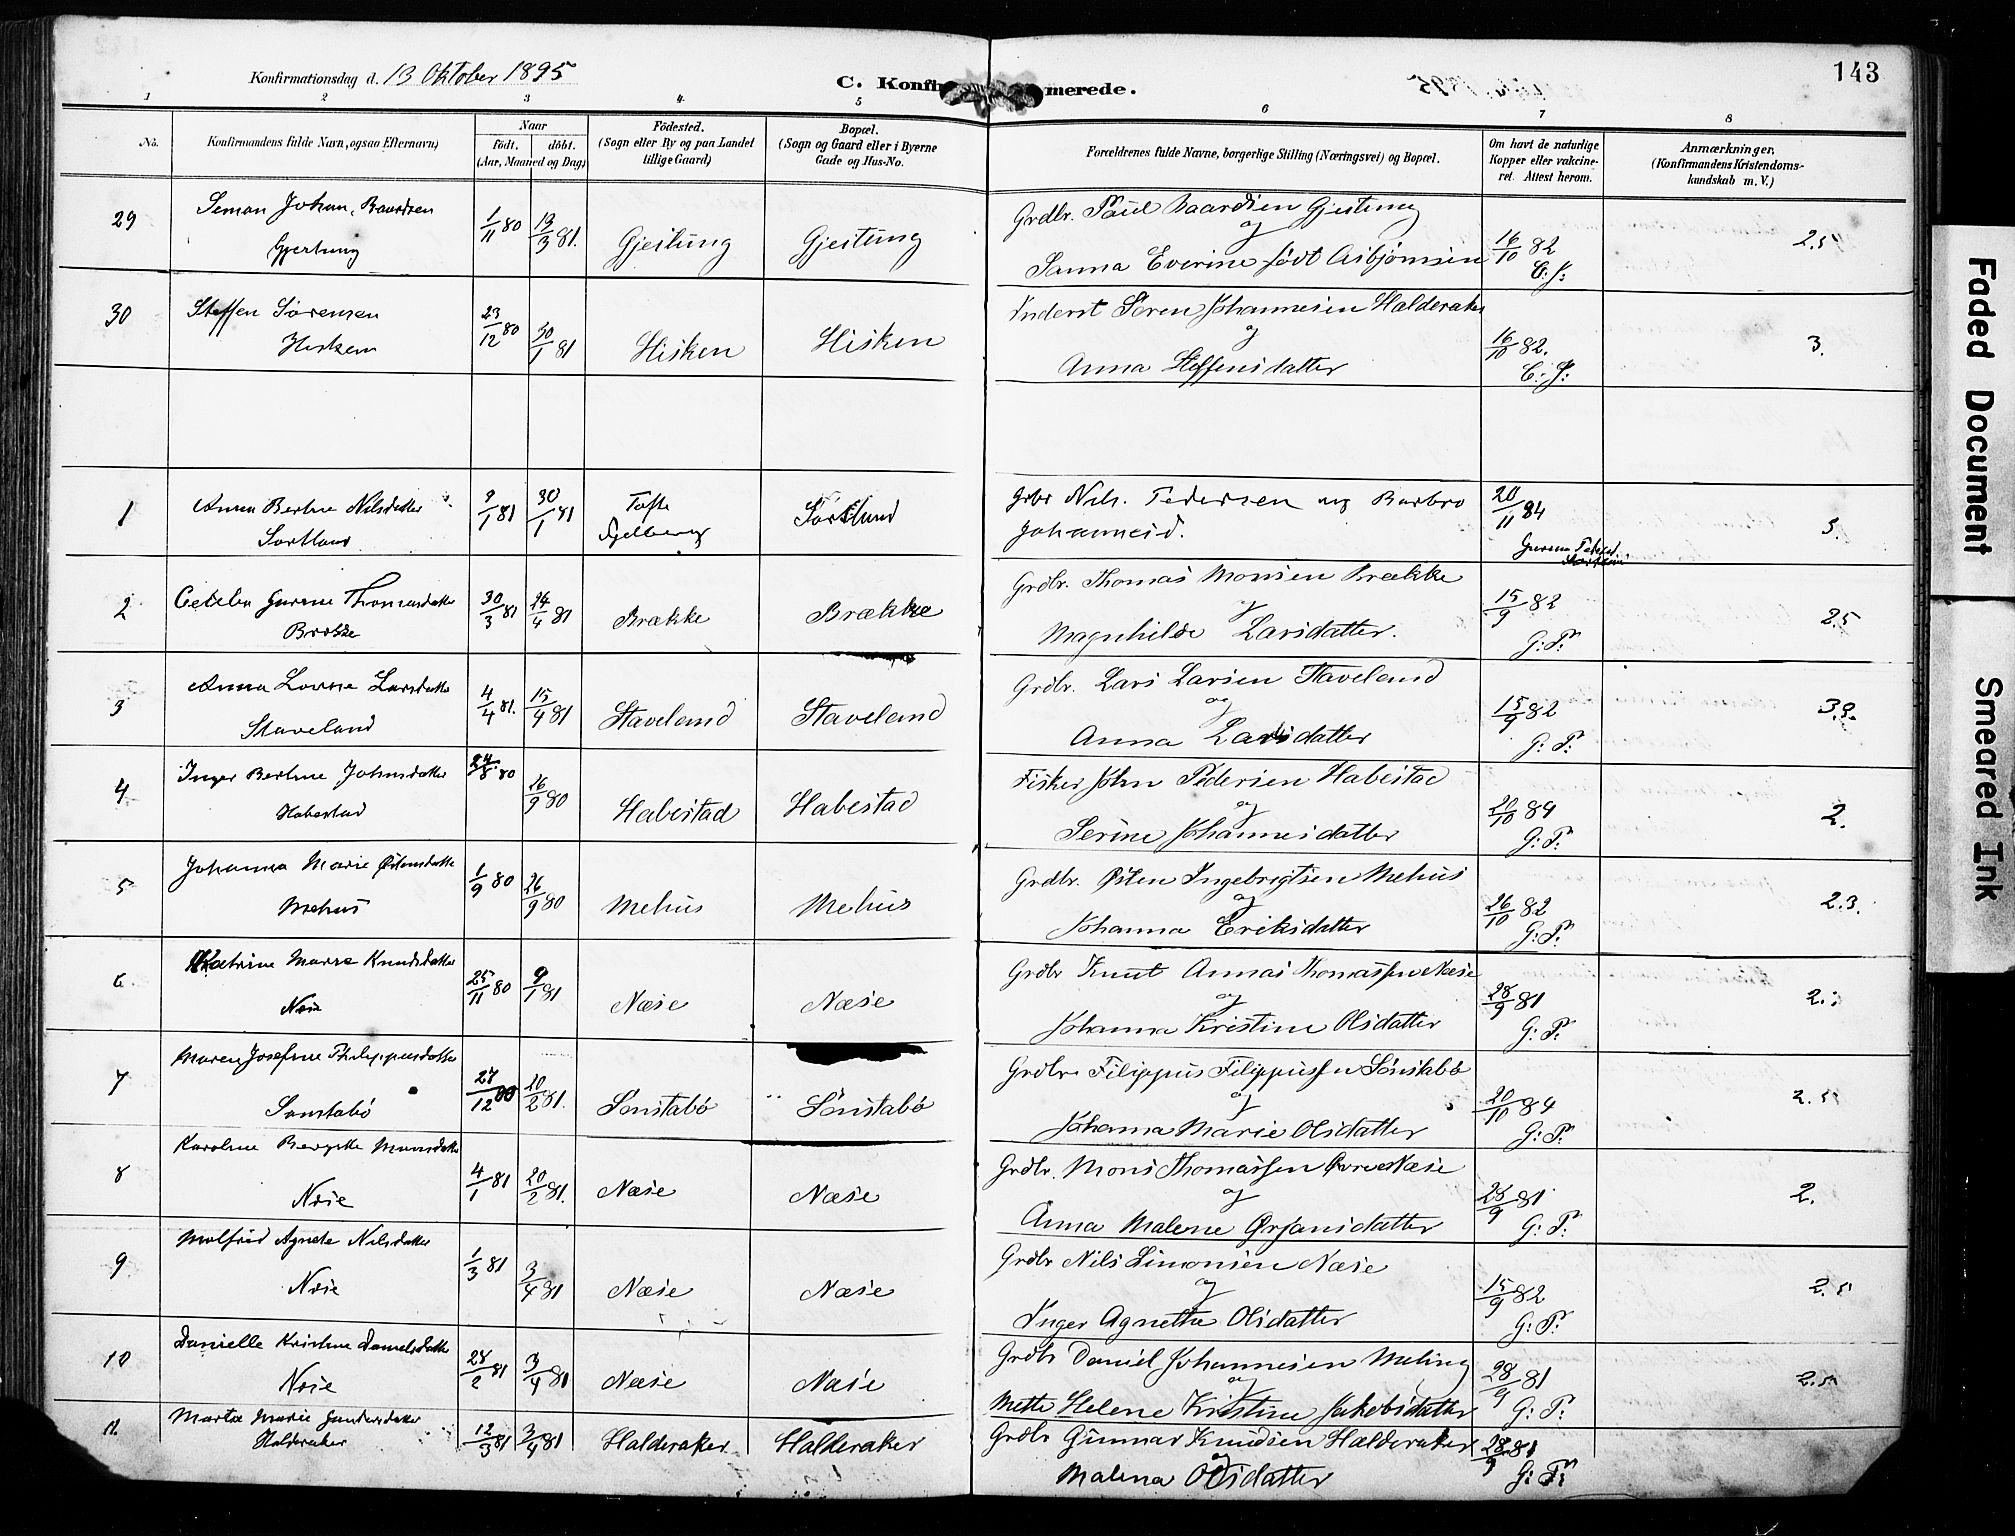 Konfirmationsdag d. 13 Oktober 1895
C. Konfir merede.
143
1 2 3 4 5 6 7 8
No.
Konfirmandens fulde Navn, ogsaa Efternavn)
Naar
født. døbt.
(Aar, Maaned og Dag)
Fødested.
(Sogn eller By og paa Landet
tillige Gaard)
Bopæl.
(Sogn og Gaard eller i Byerne
Gade og Hus-No.
Forældrenes fulde Navne, borgerlige Stilling (Næringsvei) og Bopæl.
Om havt de naturlige
Kopper eller vakcine-
ret. Attest herom.
Anmærkninger,
(Konfirmandens Kristendoms-
kundskab m. V.)
29 Simon Johan Baardsen
Gjertung
1/11 80 13/3 81. Gjeitung Gjeitung
Grdbr. Paul Baardsen Gjeitung
og
Sanna Everine født Asbjørnsen
16/10 82
2.5
30 Steffen Sørensen
Hisken
23/12 80 30/1 81 Hisken Hisken
Inderst Søren Johannesen Halderaker
og
Anna Steffensdatter
16/10 82.
3.
1 Anna Bertine Nilsdatter
Sortland
9/1 81 30/1 81 Tofte
Sortland
Grbr Nils. Pedersen og Barbro
Johannesd.
20/11 84
3.
2 Cecilia Gurine Thomasdatter
Brække
30/3 81 24/4 81 Brække Brække
Grdbr. Thomas Monsen Brække
og
Magnhilde Larsdatter.
15/9 82
G: P:
2.5
3 Anna Lovise Larsdatter
Staveland
4/4 81. 15/4 81 Staveland Staveland
Grdbr. Lars Larsen Staveland
og
Anna Larsdatter
15/9 82
G: P:
4 Inger Bertine Johnsdatter
Habestad
24/8 80 26/9 80 Habestad Habestad
Fisker John Pedersen Habestad
og
Serine Johannesdatter
20/10 84
G: P:
2.
5 Johanna Marie Østensdatter
Mehus
1/9 80 26/9 80 Mehus Mehus
Grdbr. Østen Ingebrigtsen Mehus
og
Johanna Eriksdatter
26/10 82
G: P:
2.3.
6 Katrine Marie Knudsdatter
Næse
25/11 80 9/1 81 Næse Næse
Grdbr Knut Annas Thomassen Næse
og
Johanna Kristine Olsdatter
28/9 81
G: P:
7 Maren Josefine Philippusdatter
Sønstabø
27/12 80 20/2 81. Sønstabø Sønstabø
Grdbr Filippus Filippussen Sønstabø
og
Johanna Marie Olsdatter
20/10 84
G: P:
2.5
8 Karoline Bergitte Monsdatter
Næse
4/1 81 20/2 81. Næse Næse
Grdbr. Mons Thomassen Øvre Næse
og
Anna Malene Ørjansdatter
28/9 81
G: P:
2.
9 Molfrid Agnete Nilsdatter
Næse
1/3 81 3/4 81 Næse Næse
Grdbr Nils Simonsen Næse
og
Inger Agnethe Olsdatter
15/9 82
G: P:
2.5
10 Danielle Kristine Danielsdatter
Næse
28/2 81 3/4 81 Næse Næse
Grdbr Daniel Johannesen Meling
og
Mette Helene Kristine Jakobsdatter
28/9 81
G: P:
2.5
11. Marta Marie Gundersdatter
Halderaker
12/3 81 3/4 81 Halderaker Halderaker
Grdbr Gunnar Knudsen Halderaker
og
Malena Olsdatter
28/9 81
G: P:
Faded Document
Smeared Ink